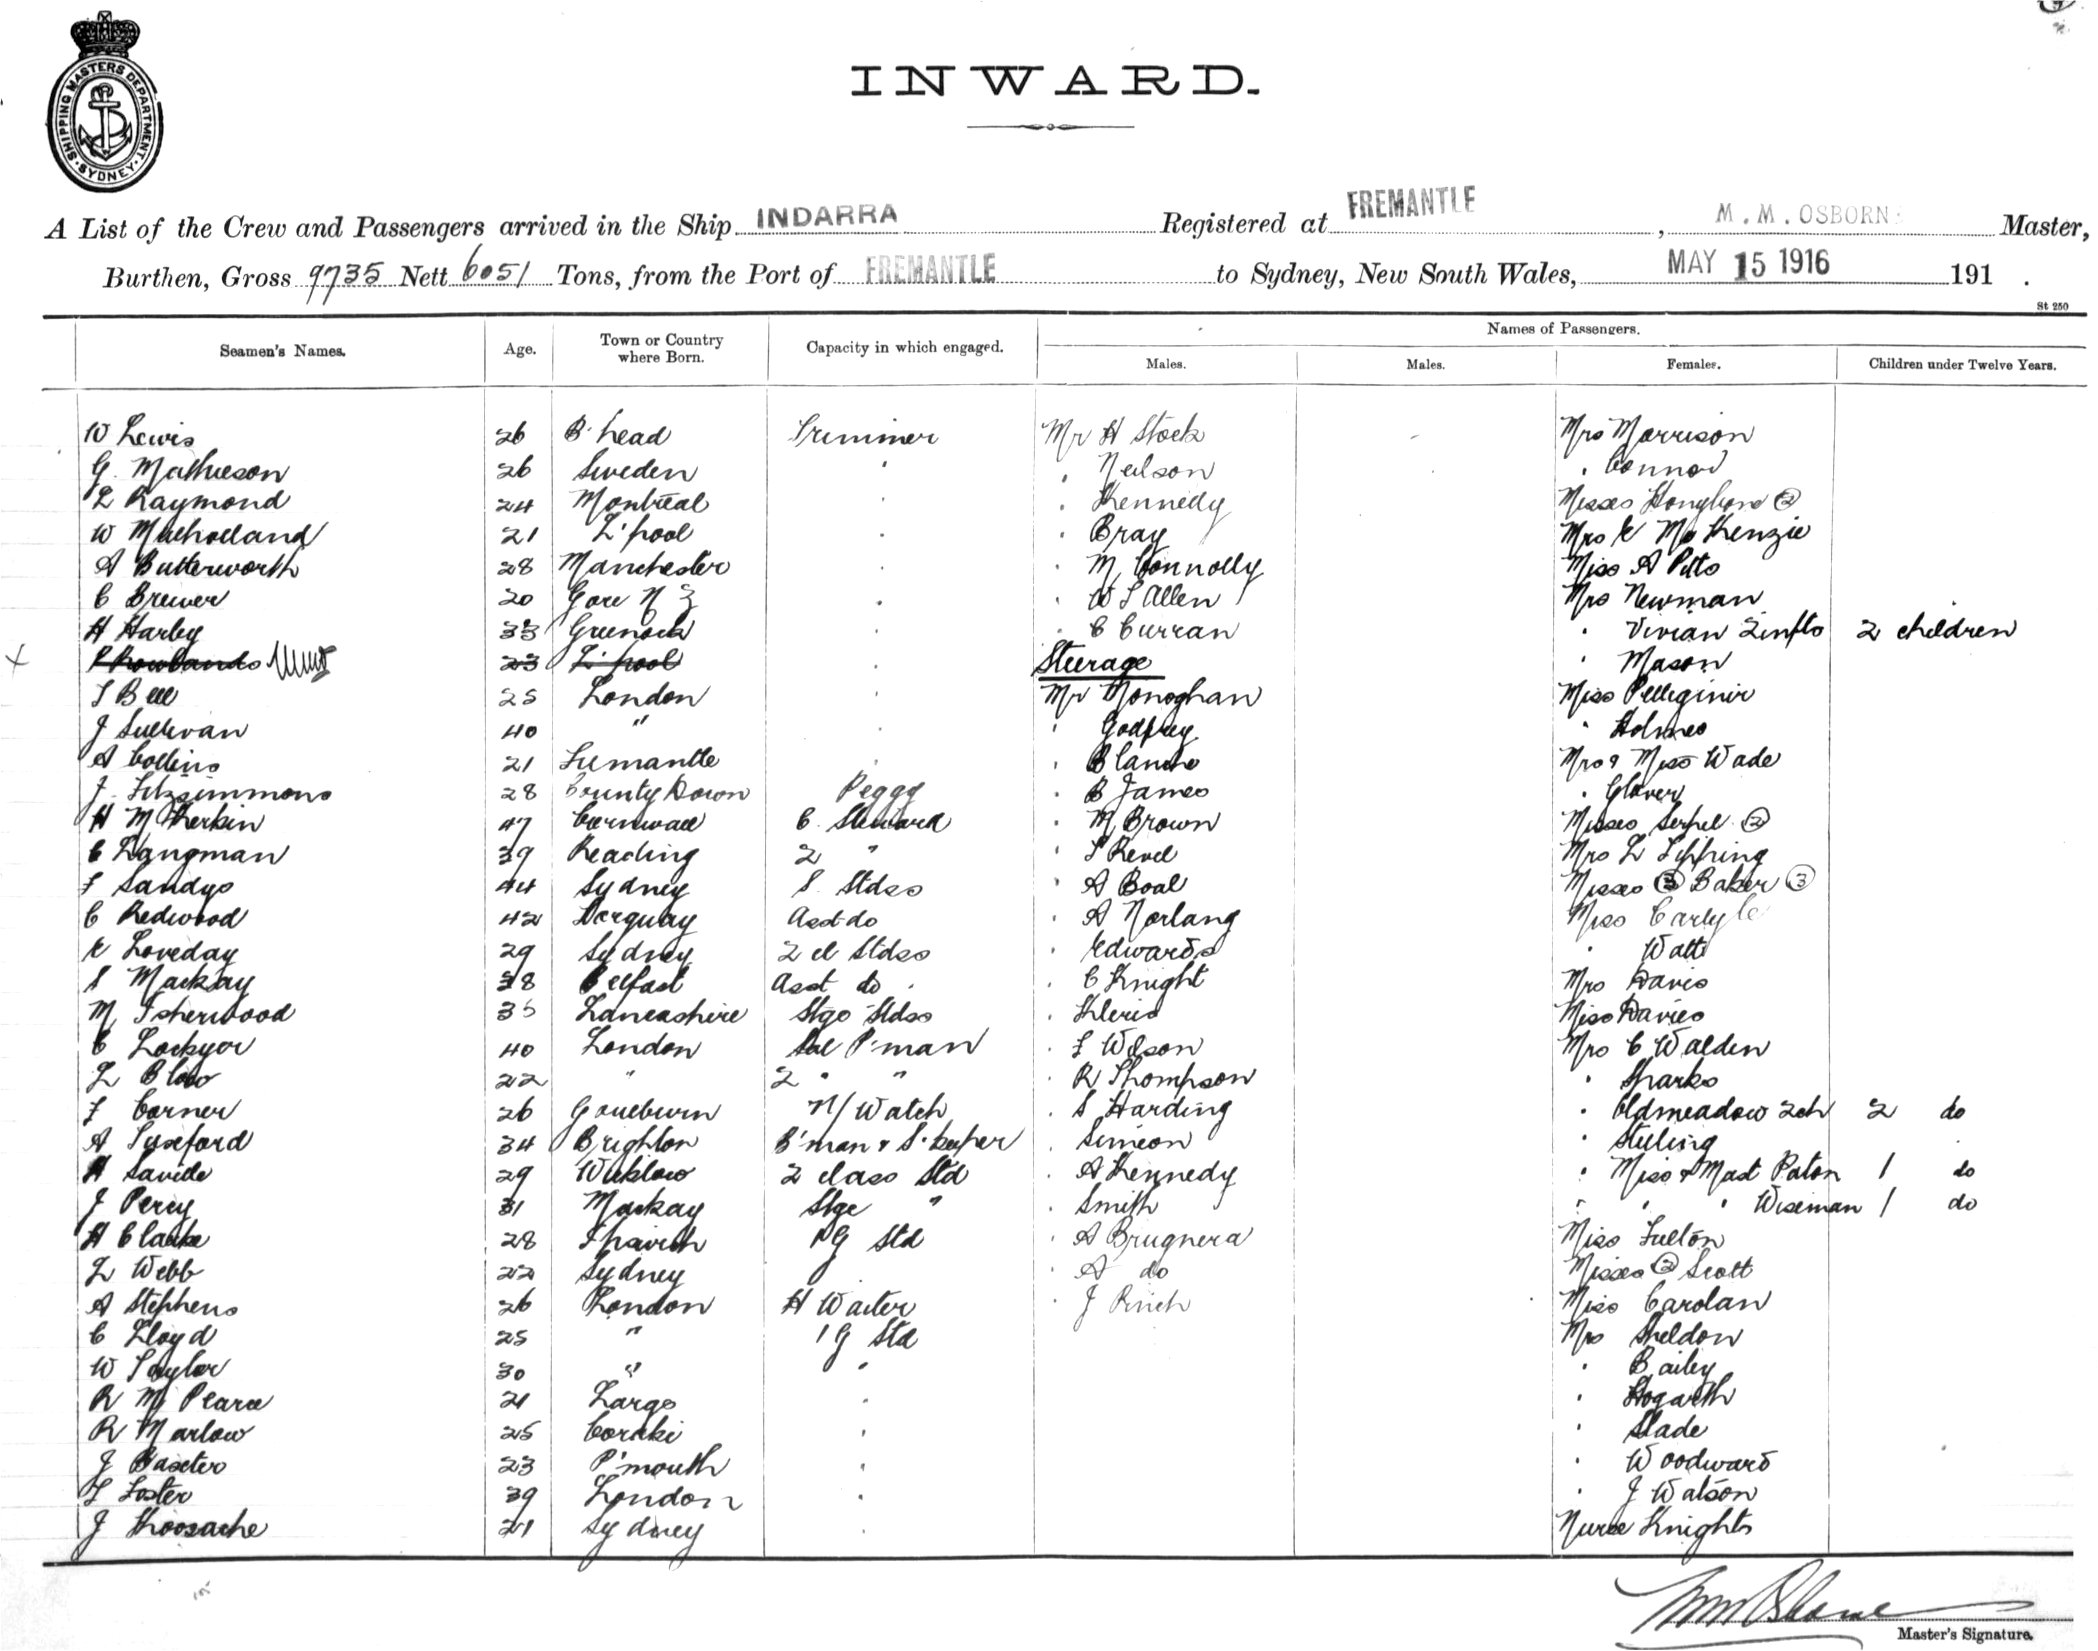 SHIPPING MASTERS DEPARTMENT
SYDNEY
INWARD.
A List of the Crew and Passengers arrived in the Ship INDARRA Registered at FREMANTLE, M. M. OSBORN Master,
Burthen, Gross 9735 Nett 6051 Tons, from the Port of FREMANTLE to Sydney, New South Wales, MAY 15 1916 191 .
St 250
Seamen's Names. Age. Town or Country where Born. Capacity in which engaged. Names of Passengers.
Males. Males. Females. Children under Twelve Years.
W Lewis 26 B'head Trimmer Mr H Stock Mrs Morrison
G. Mathieson 26 Sweden ' ' Neilson ' Connor
L Raymond 24 Montreal ' ' Kennedy Misses ②
W Mulholland 21 L'pool ' ' Bray Mrs K McKenzie
A Butterworth 28 Manchester ' ' M Connolly Miss A Pitts
C Brewer 20 Gore N Z ' ' W S Allen Mrs Newman
H Harley 33 Greenock ' ' C Curran ' Vivian 2 children
X Rowlands 23 L'pool ' Steerage ' Mason
T Bell 25 London ' Mr Monoghan Miss Pelliginir
J Sullivan 40 " ' ' Godfrey ' Holmes
A Collins 21 Fremantle ' ' Mrs & Miss Wade
J. Fitzsimmons 28 County Down Peggy ' B James ' Glover
H M 47 Cornwall C. Steward ' M Brown Misses Serpel ②
C Langman 39 Reading 2 " ' Mrs L Tipping
F Sandys 44 Sydney S. Stdss ' A Boal Misses ③ Baker ③
C Redwood 42 Asst do ' A Norlang Miss Carlyle
K Loveday 29 Sydney 2 cl Stdss ' Edwards ' Watt
S Mackay 38 Belfast Asst do ' C Knight Mrs Davis
M Isherwood 35 Lancashire Stge Stdss ' Miss Davies
C Lockyer 40 London Sal P'man ' F Wilson Mrs C Walden
L Blow 22 " 2 " " ' R Thompson ' Sparks
F Corner 26 Goulburn N/Watch ' S Harding ' Oldmeadow 2ch 2 do
A Tuxford 34 Brighton B'man & S'keeper ' Simeon ' Stirling
H Saville 29 Wicklow 2 class Std ' A Kennedy ' Miss & Mast Paton 1 do
J Percy 31 Mackay Stge " ' Smith ' ' ' Wiseman 1 do
H Clarke 28 Ipswich 1 G Std ' A Brugnera Miss Fulton
L Webb 22 Sydney ' A do Misses ② Scott
A Stephens 26 London H Waiter ' J Pinch Miss Carolan
C Lloyd 25 " 1 G Std Mrs Sheldon
W Taylor 30 " ' ' Bailey
R M Pearce 21 Largs ' ' Hogarth
R Marlow 25 Coraki ' ' Slade
J Baxter 23 P'mouth ' ' Woodward
T Foster 39 London ' ' J Watson
J 21 Sydney ' Nurse Knights
Master's Signature.